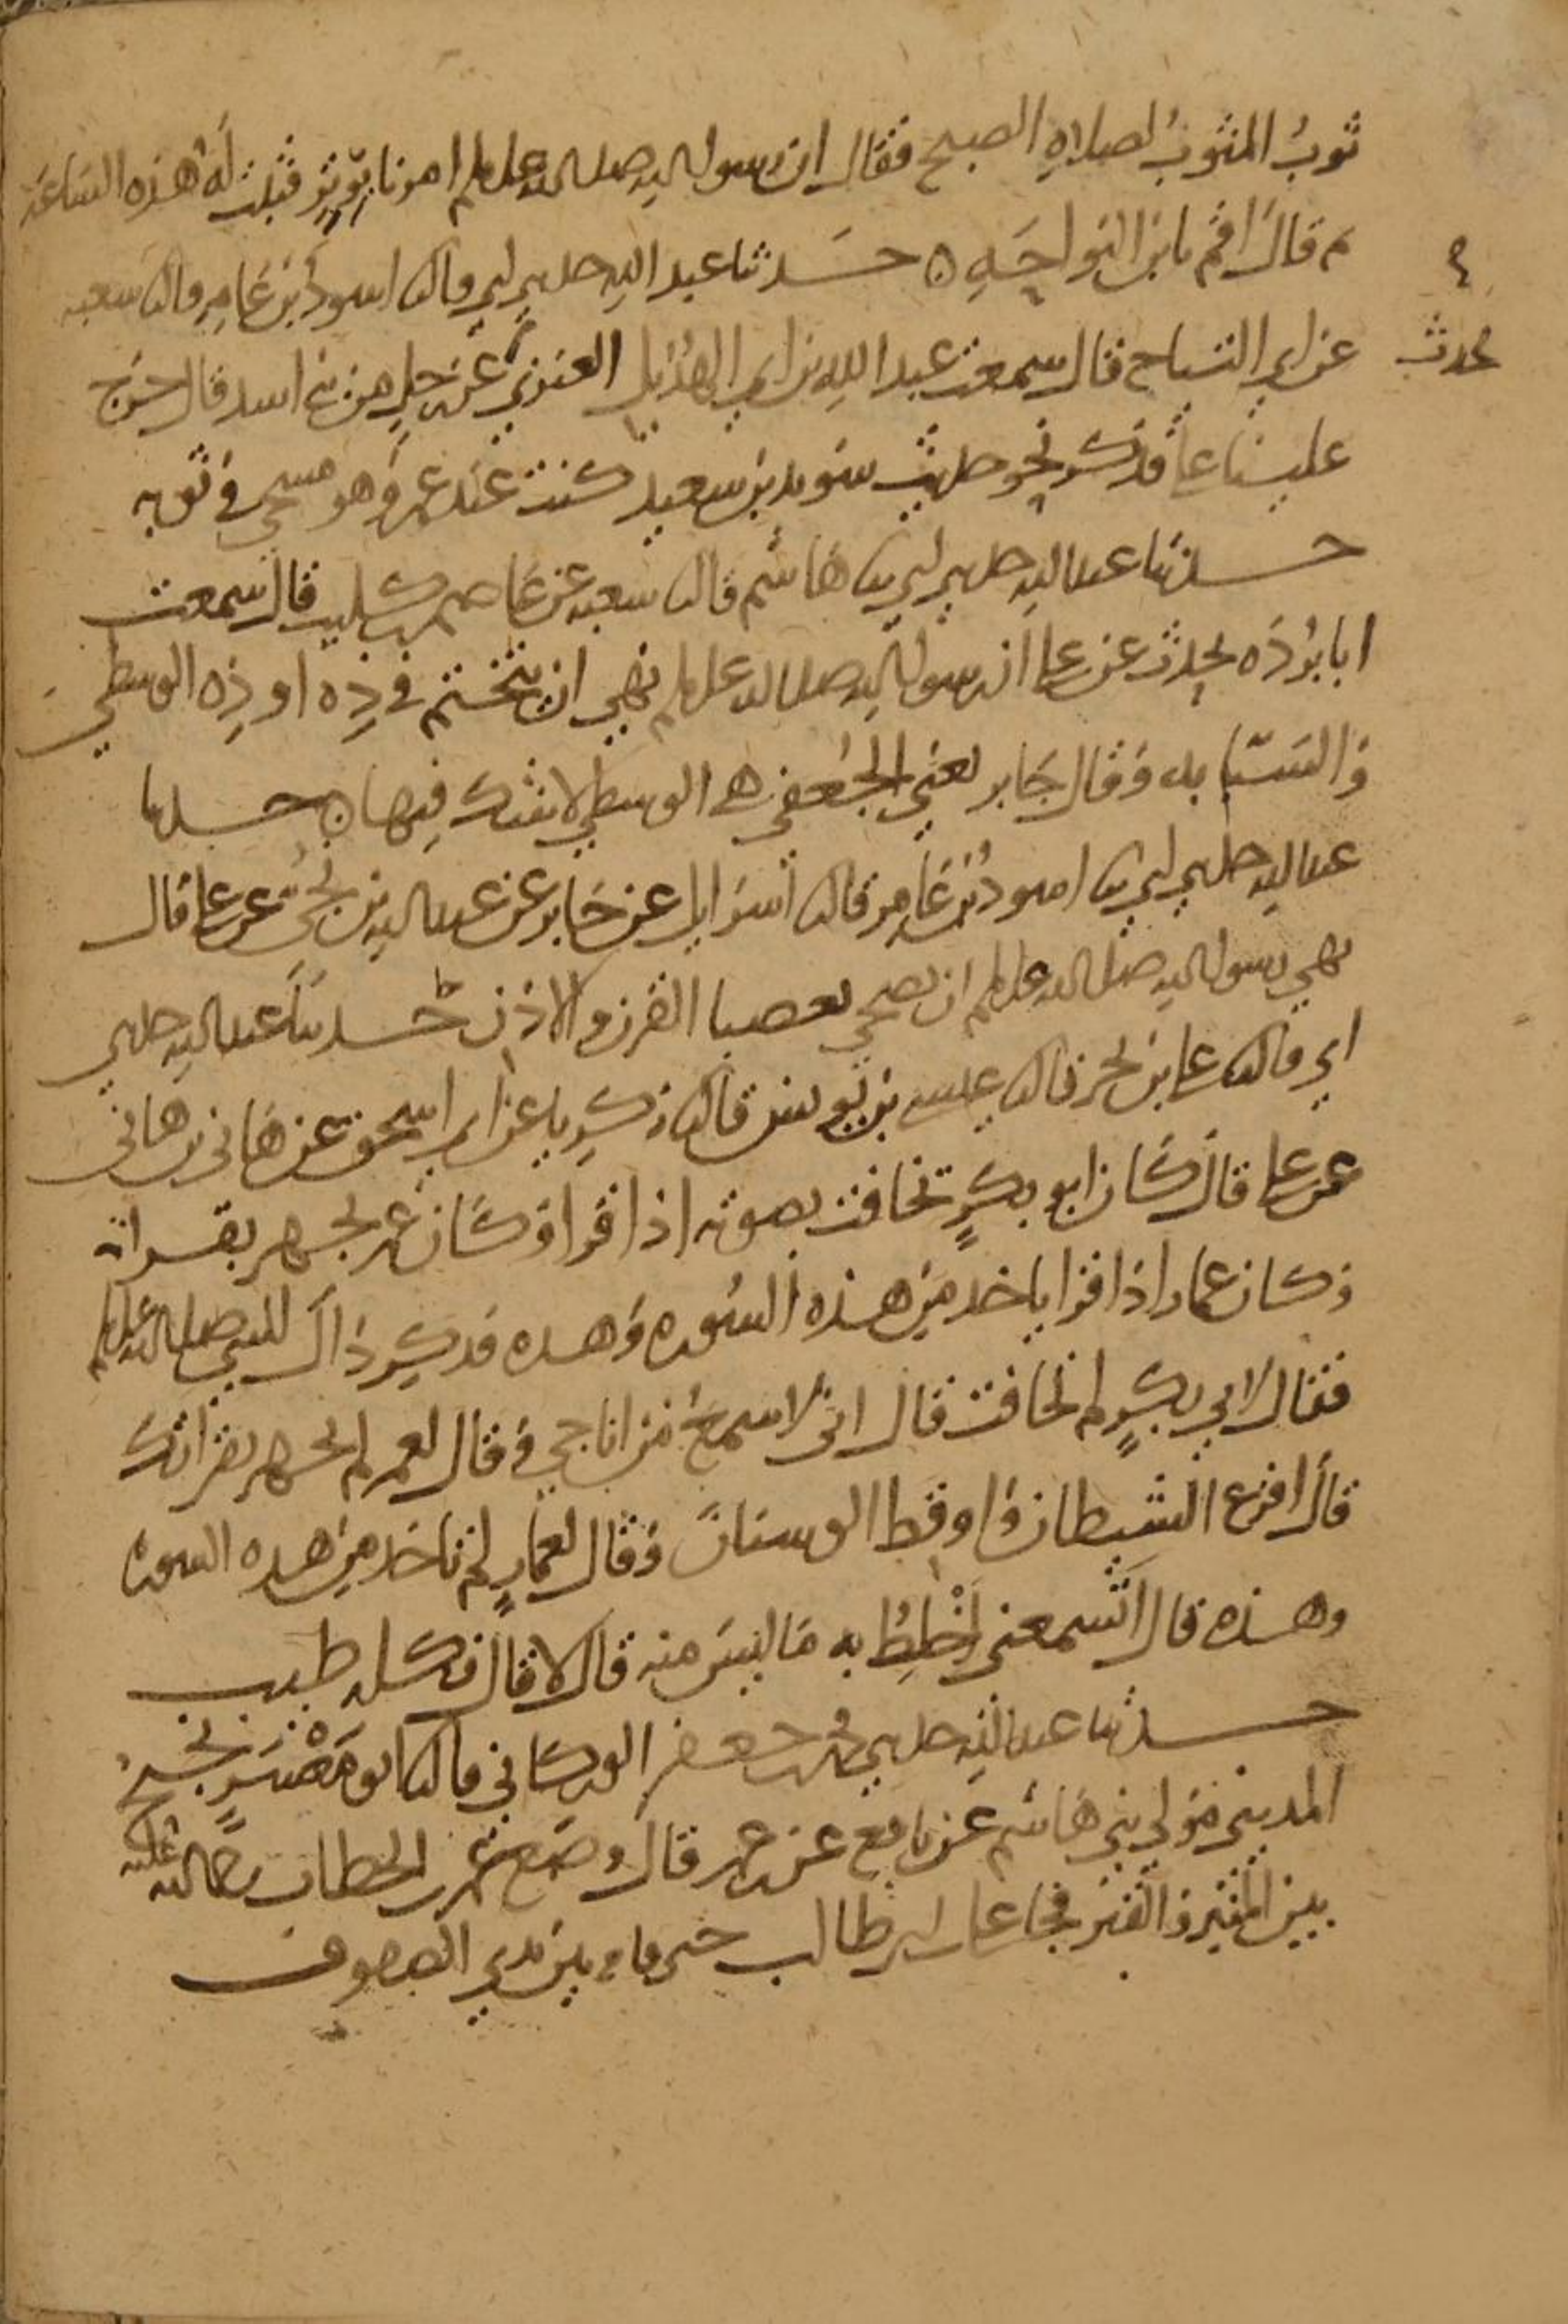 ثوبُ المثوبُ لصلاةِ الصبح فقال ان رسول الله صلى الله عليه وسلم امرنا بوترٍ فثبت له هذه الساعة
ثم قال اقم يا بن النواحَهِ ه حَدثنا عبد الله حدثني ابي قال ثنا اسود بن عَامِر قال ثنا شعبه
٤
يحدث
عن ابي التياح قال سمعت عبد الله بن ابي الهُذيل العنزي عن رجل من بني اسد قال خرج
علينا علي فذكر نحو حديث سويد بن سعيد كنت عند عمر وهو مسجى في ثوبه
حدثنا عبد الله حدثني ابي ثنا هاشم قال ثنا شعبه عن عاصم بن كليب قال سمعت
ابا بُردَه يحدث عن علي ان رسول الله صلى الله عليه وسلم نهى ان يتختم في ذِه او ذِه الوسطى
والسبّابه وقال جَابر يعني الجُعفي هي الوسطى لا شك فيها ه حدثنا
عبد الله حدثني ابي ثنا اسود بُن عَامر قال ثنا اسرايل عن جَابر عن عبد الله بن نُجَيّ عن علي قال
نهى رسول الله صلى الله عليه وسلم ان يضحى بعضبا القرن والاذن حدثنا عبد الله حدثني
ابي قال ثنا علي بن بحر قال ثنا عيسى بن يونس قال ثنا زكريا عن ابي اسحق عن هاني بن هاني
عن علي قال كان ابو بكرٍ يخافت بصوته اذا قرا وكان عمر يجهر بقراته
وكان عمار اذا قرا ياخد من هذه السُوره وهده فدكِر ذاك للنبي صلى الله عليه وسلم
فقال لابي بكرٍ لم تخافت قال اني لاسمعُ من اناجي وقال لعمر لم تجهر بقراتك
قال افزع الشيطان واوقظ الوسنانَ وقال لعمارٍ لم تاخد من هده السوره
وهذه قال اتسمعني اخْلِطُ به مَا ليسَ منه قال لا قال فكله طيب
حدثنا عبد الله حدثني محمد بن جعفر الوركاني قال ثنا ابو مَعْشرٍ نجيحٌ
المديني مولى بني هَاشم عن نافع عن بن عمر قال وضع عمر بن الخطاب رضي الله عليه
بين المنبر والقبر فجا علي بن ابي طالب حتى قام بين يدي الصفوف